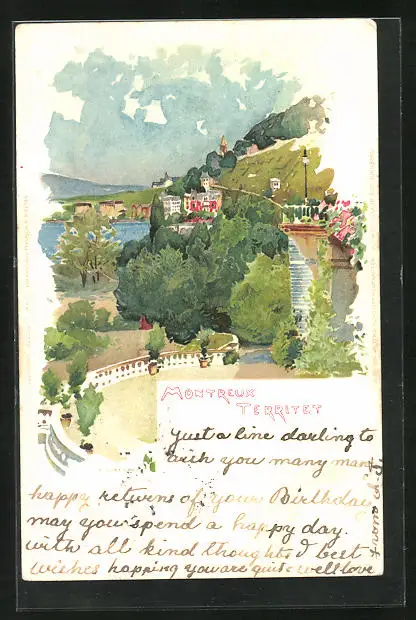 MONTREUX
TERRITET
Just a line darling to
wich you many many
happy returns of your Birthday
may you spend a happy day.
with all kind thoughts & best
wishes happing you are quite well love
from